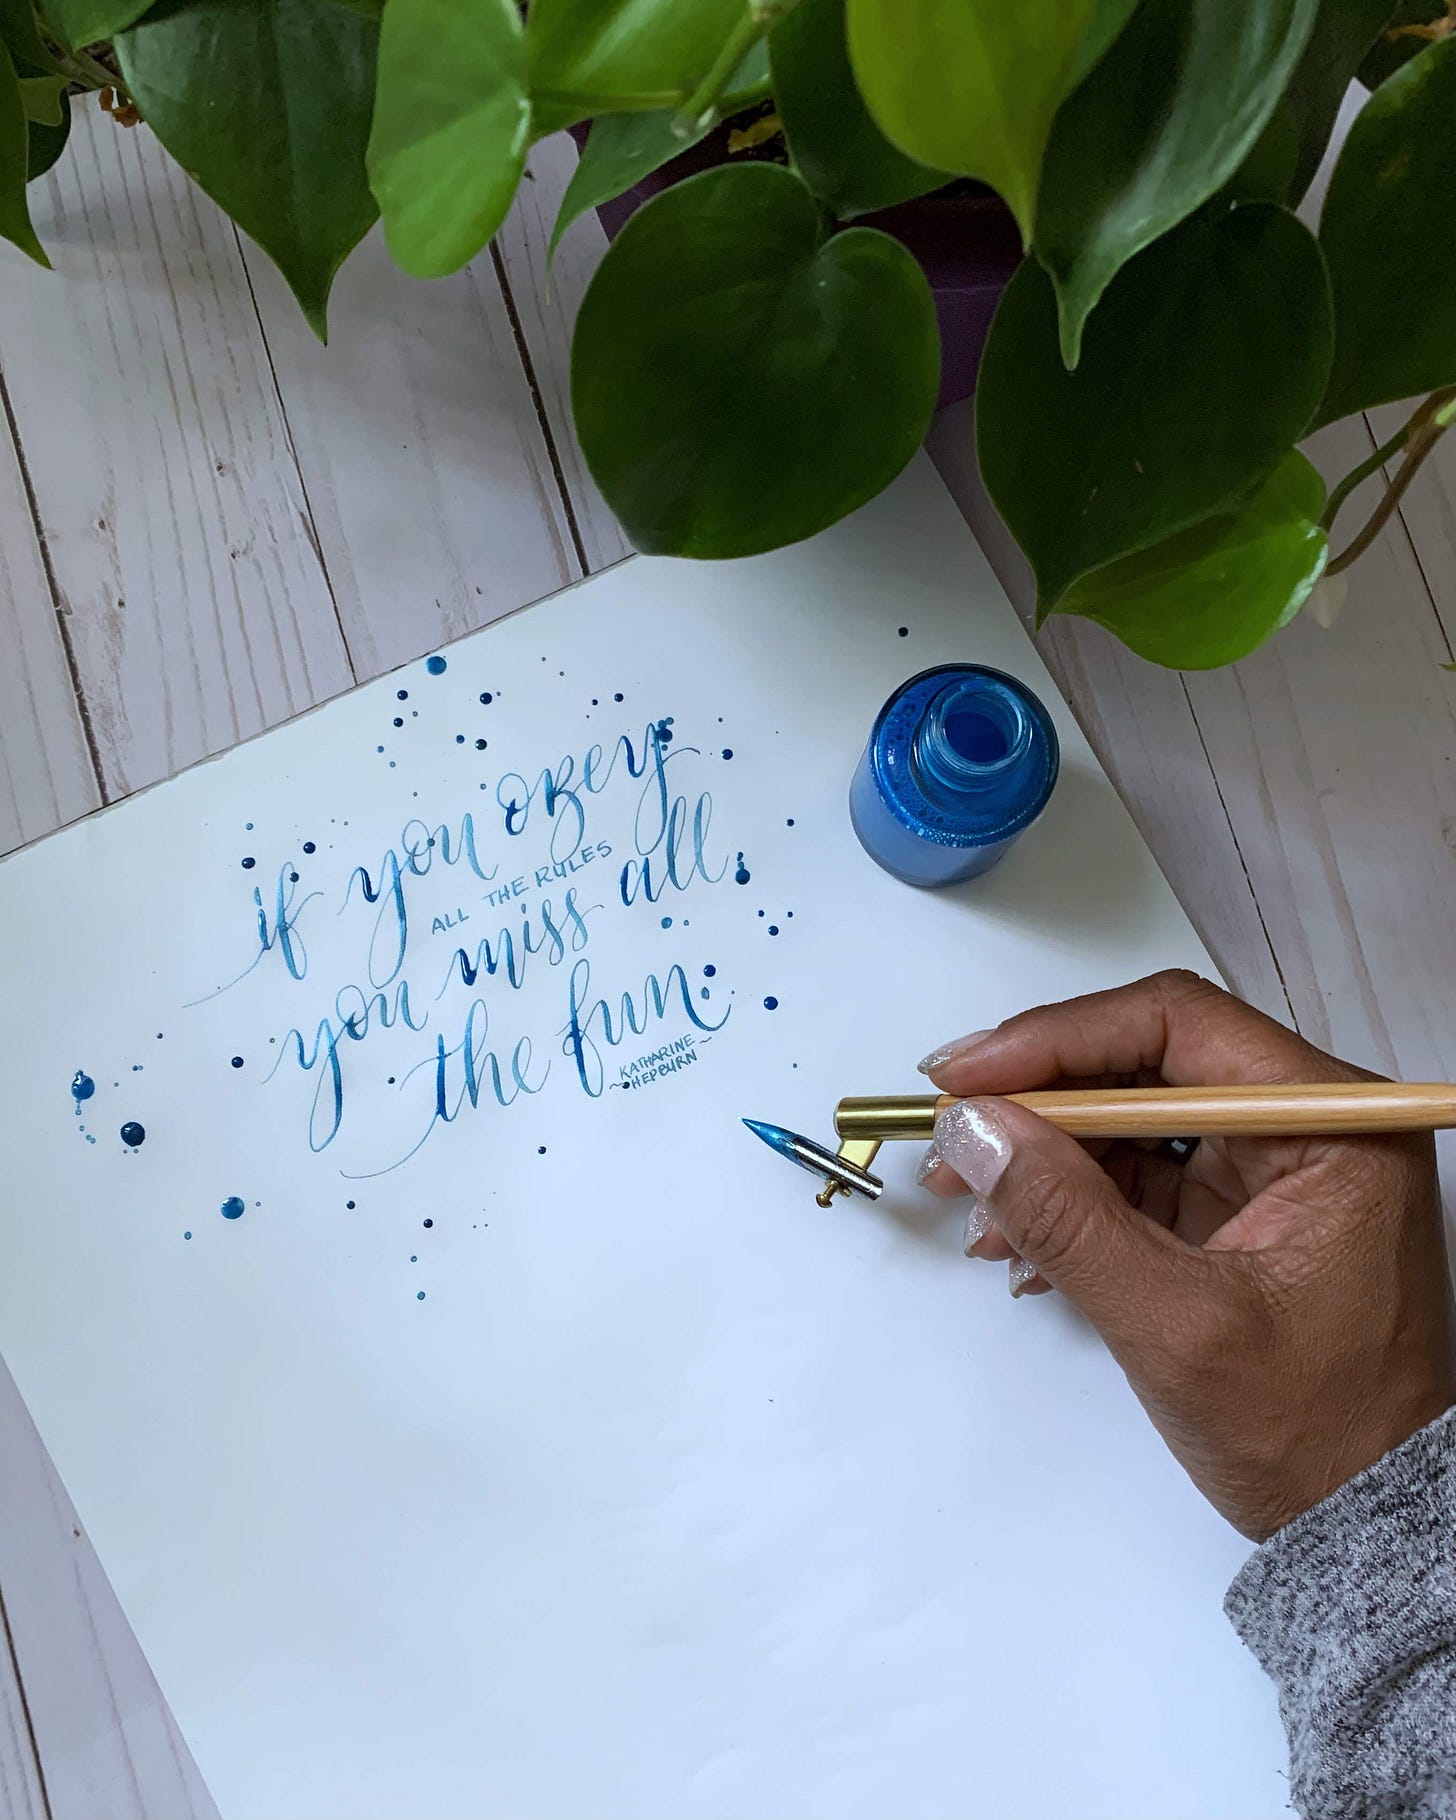 if you obey
ALL THE RULES
you miss all
the fun.
~KATHARINE~
~HEPBURN~